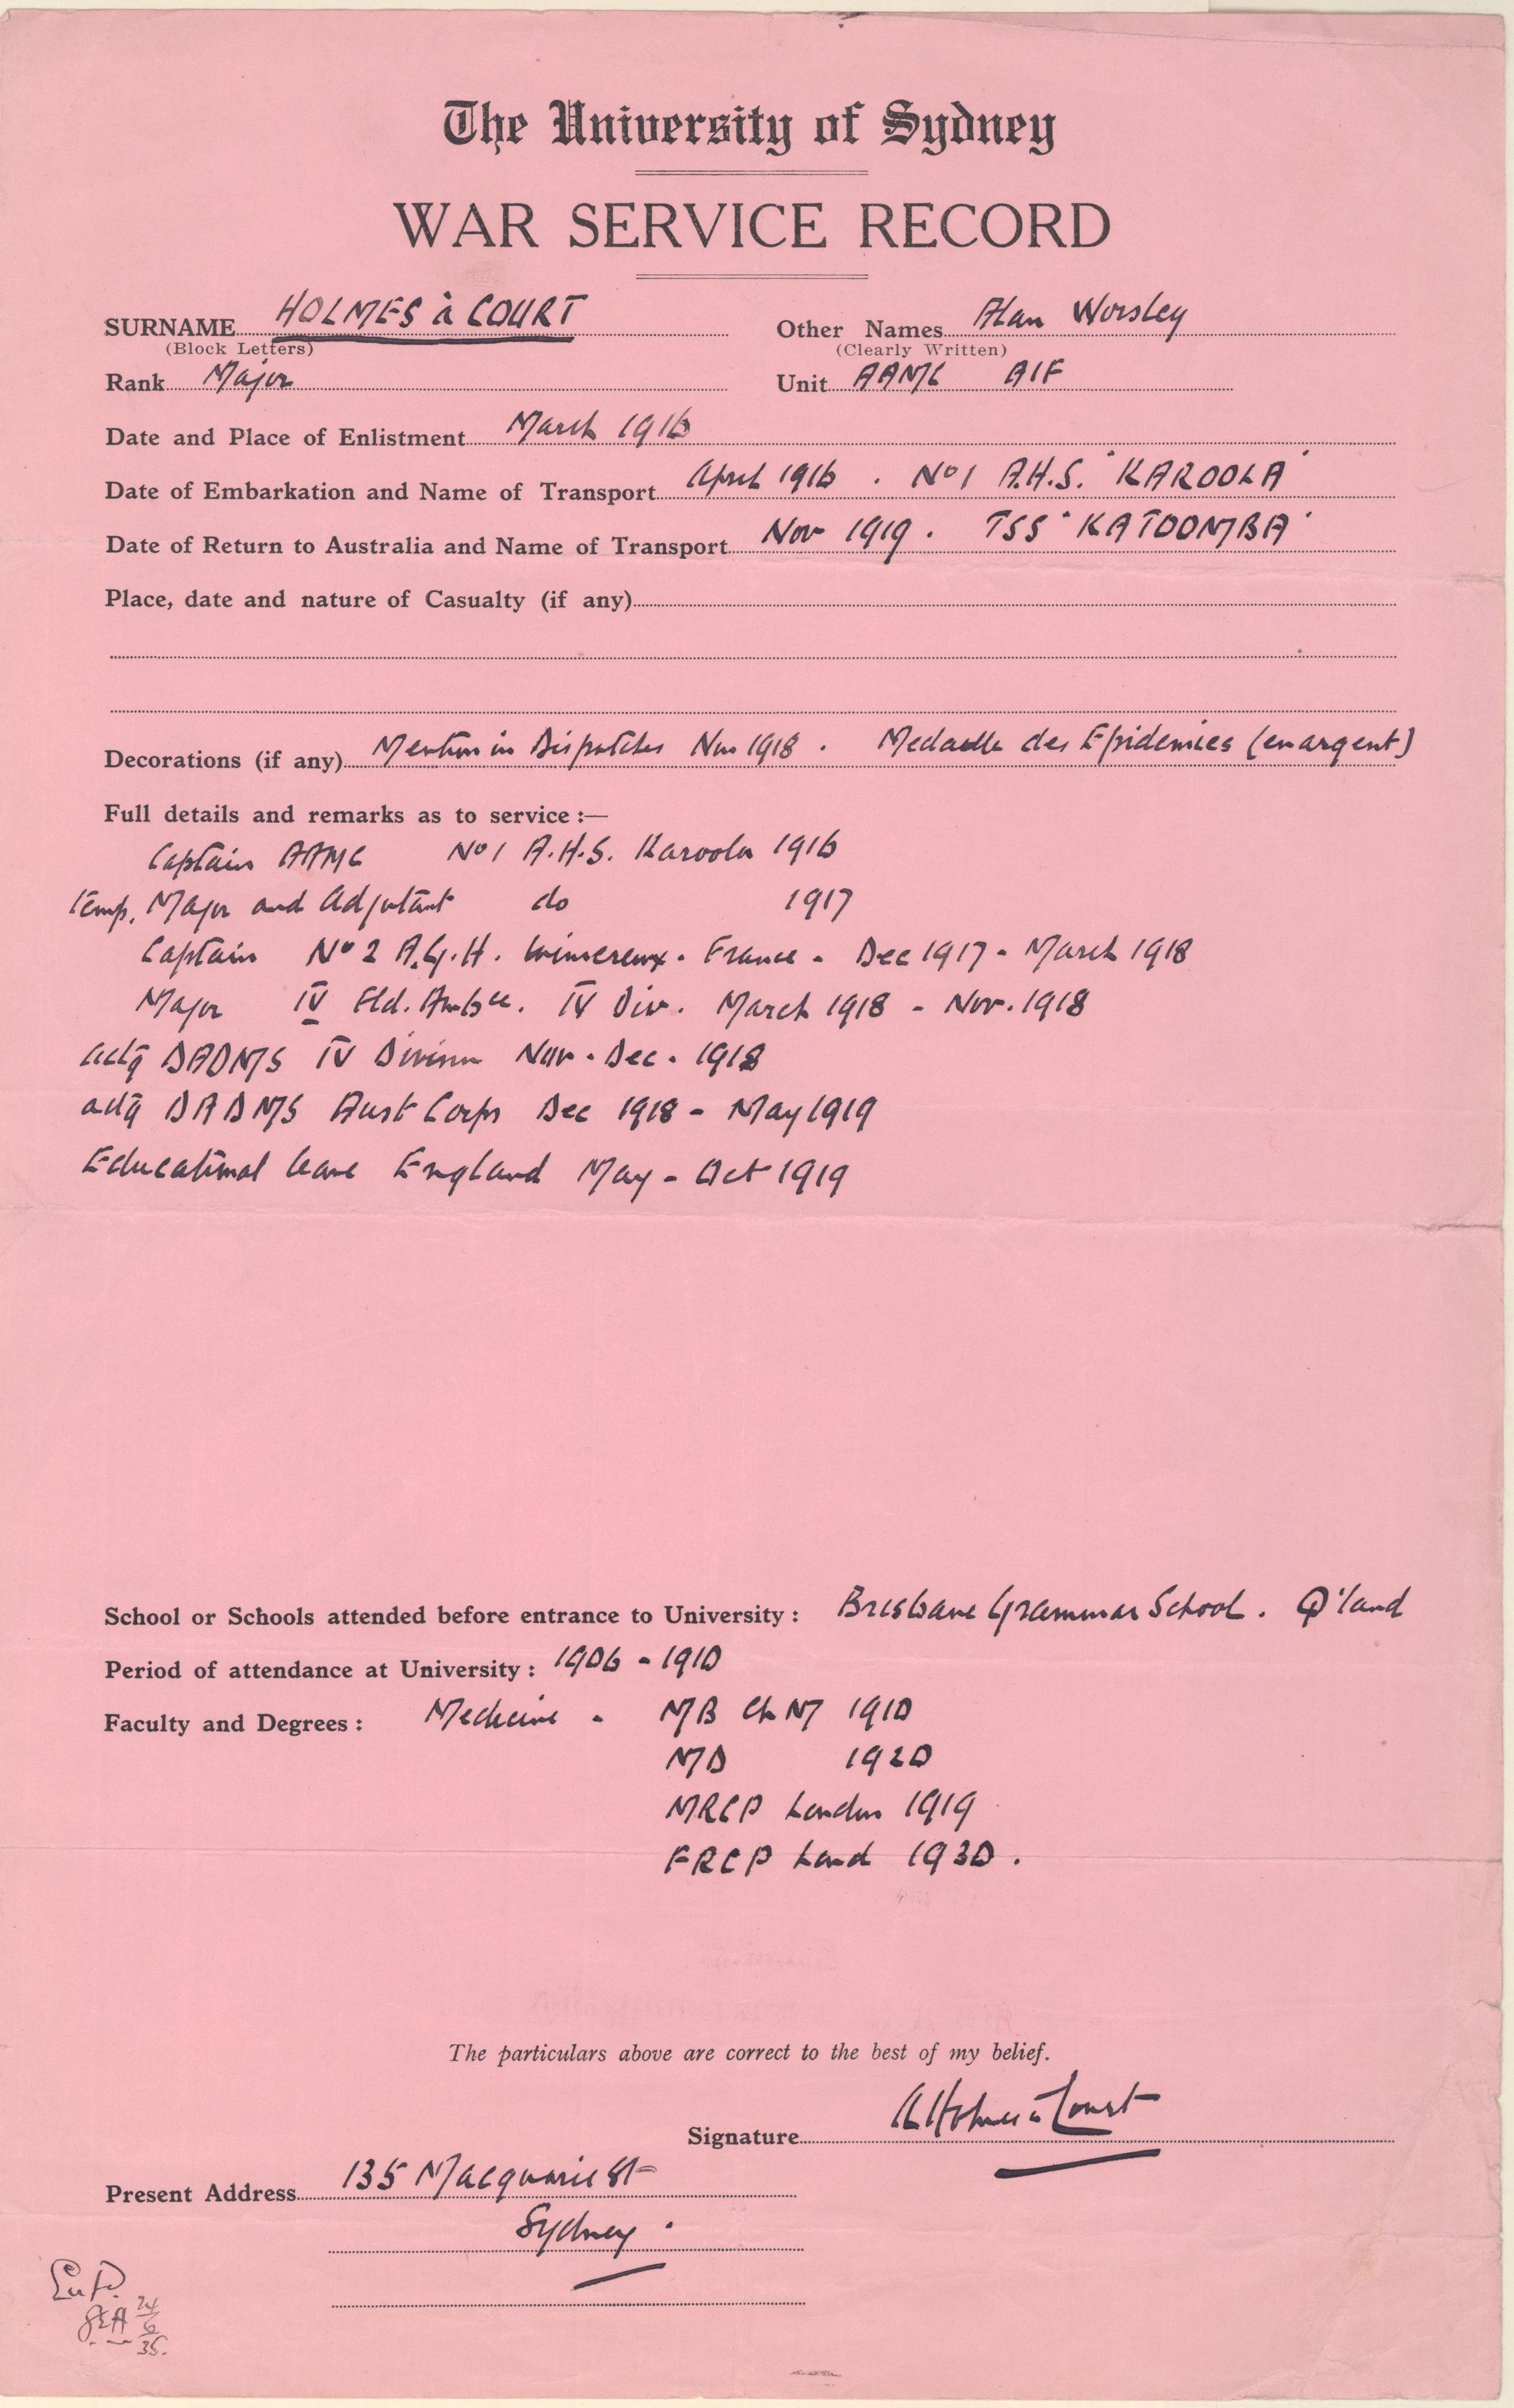 The University of Sydney
WAR SERVICE RECORD
SURNAME HOLMES à COURT Other Names Alan Worsley
(Block Letters) (Clearly Written)
Rank Major Unit AAMC AIF
Date and Place of Enlistment March 1916
Date of Embarkation and Name of Transport April 1916 . No 1 A.H.S. "KAROOLA"
Date of Return to Australia and Name of Transport Nov 1919 . TSS "KATOOMBA"
Place, date and nature of Casualty (if any)
Decorations (if any) Mention in Dispatches Nov 1918 . Medaille des Epidemies (en argent)
Full details and remarks as to service :—
Captain AAMC No 1 A.H.S. Karoola 1916
Temp. Major and Adjutant do 1917
Captain No 2 A.G.H. Wimereux . France - Dec 1917 - March 1918
Major IV Fld. Ambce. IV Div. March 1918 - Nov. 1918
actg DADMS IV Division Nov - Dec - 1918
actg DADMS Aust Corps Dec 1918 - May 1919
Educational leave England May - Oct 1919
School or Schools attended before entrance to University : Brisbane Grammar School . Q'land
Period of attendance at University : 1906 - 1910
Faculty and Degrees : Medicine - MB ChM 1910
MD 1920
MRCP London 1919
FRCP Lond 1930 .
The particulars above are correct to the best of my belief.
Signature A Holmes à Court
Present Address 135 Macquarie St
Sydney .
Ent.
24
6
35.